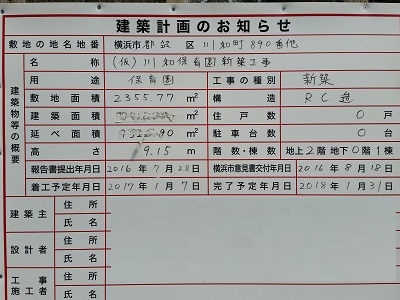 建築計画のお知らせ
敷地の地名地番 横浜市都筑区川和町890番他
建築物等の概要
名称 (仮)川和保育園新築工事
用途 保育園 工事の種別 新築
敷地面積 2355.77 m² 構造 RC造
建築面積 m² 住戸数 0戸
延べ面積 90 m² 駐車台数 0台
高さ 9.15 m 階数・棟数 地上2階地下0階1棟
報告書提出年月日 2016年7月28日 横浜市意見書交付年月日 2016年8月18日
着工予定年月日 2017年1月7日 完了予定年月日 2018年1月31日
建築主 住所
氏名
設計者 住所
氏名
工事施工者 住所
氏名